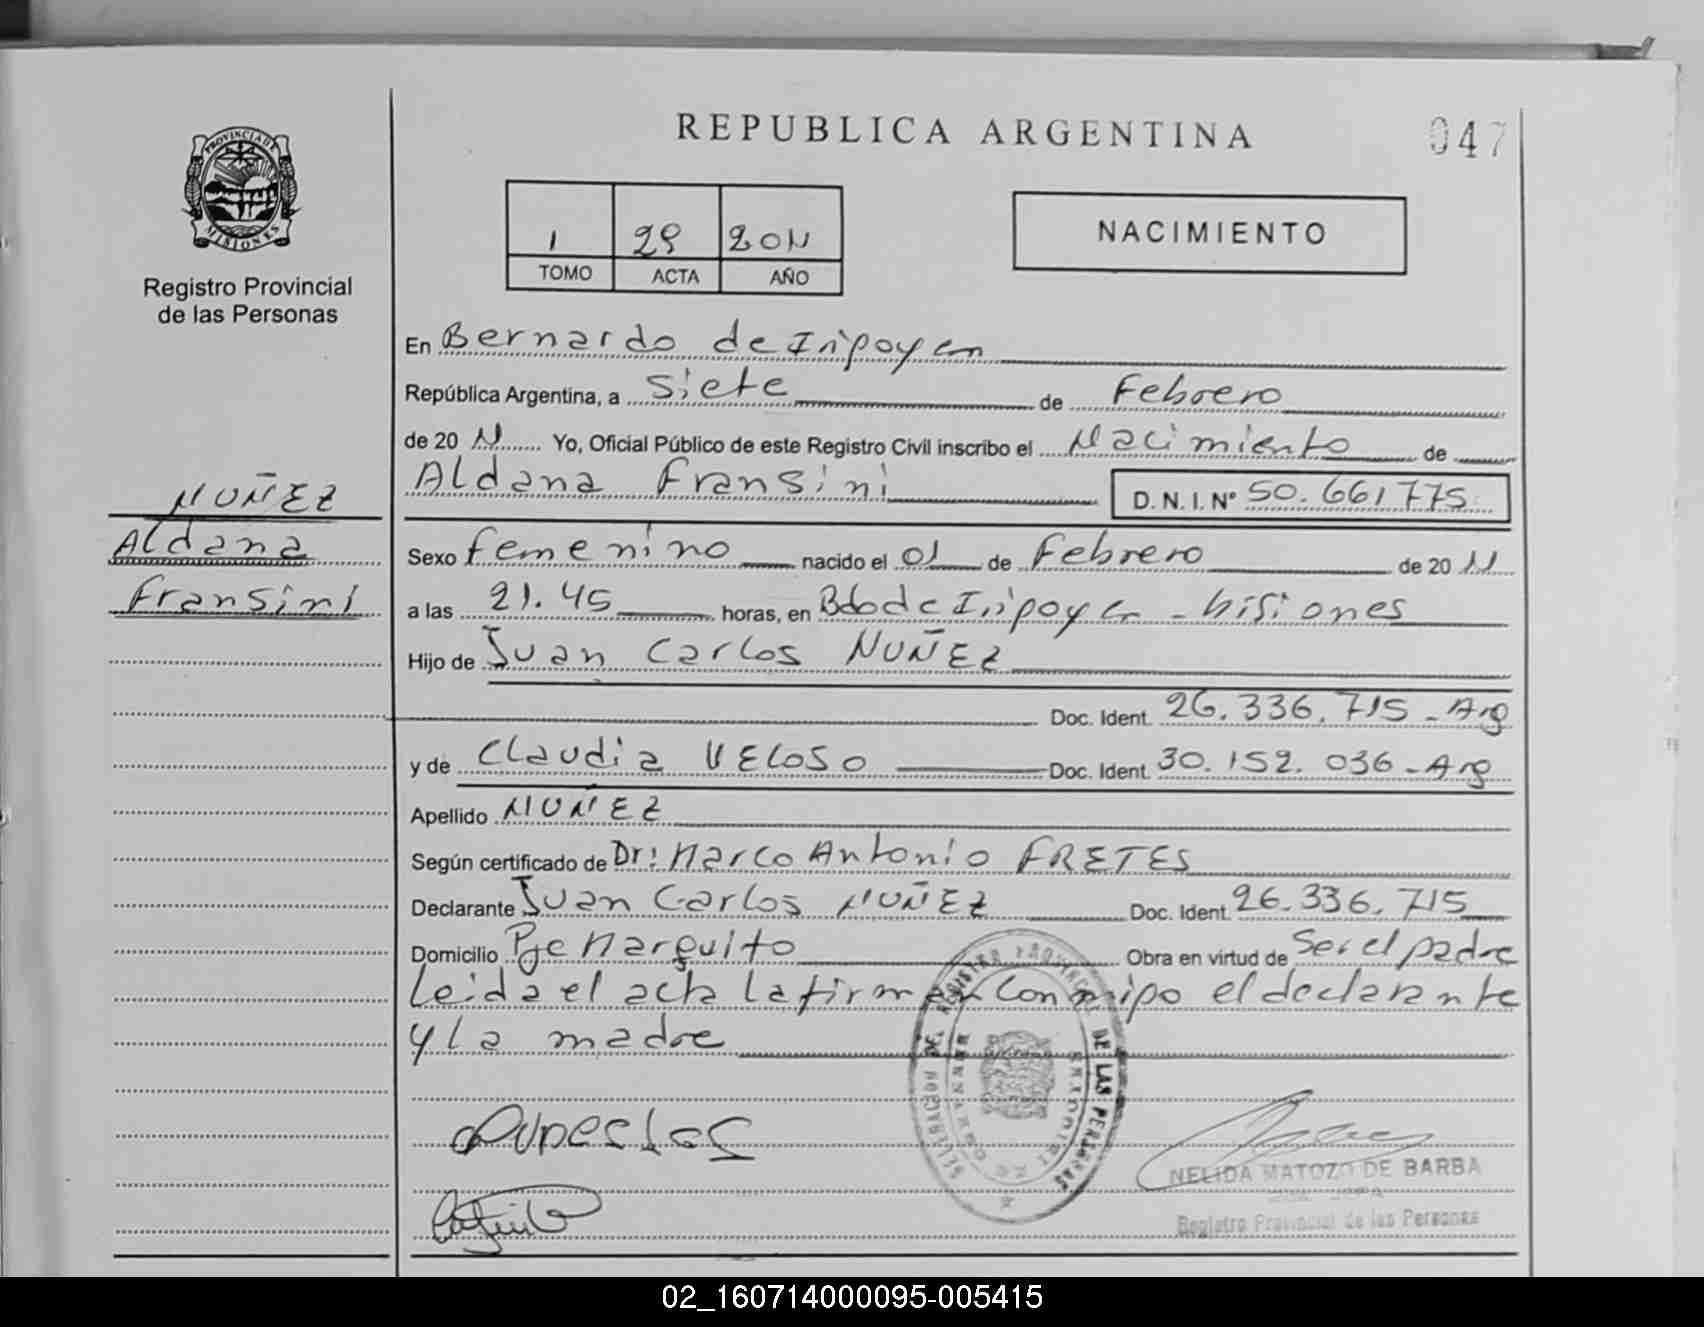 REPUBLICA ARGENTINA
047
PROVINCIA DE
MISIONES
Registro Provincial
de las Personas
1 29 2011
TOMO ACTA AÑO
NACIMIENTO
En Bernardo de Iripoyen
República Argentina, a siete de Febrero
de 20 11 Yo, Oficial Público de este Registro Civil inscribo el Nacimiento de
Aldana Fransini D. N. I. Nº 50.661775
NUÑEZ
Aldana
Fransini
Sexo femenino nacido el 01 de Febrero de 20 11
a las 21.45 horas, en Bdo de Iripoyen - Misiones
Hijo de Juan Carlos NUÑEZ
Doc. Ident. 26.336.715 - Arg
y de Claudia VELOSO Doc. Ident. 30.152.036 - Arg
Apellido NUÑEZ
Según certificado de Dr: Marco Antonio FRETES
Declarante Juan Carlos NUÑEZ Doc. Ident. 26.336.715
Domicilio Pje Marquito Obra en virtud de Ser el padre
Leida el acta la firman conmipo el declarante
y la madre
DE LAS PERSONAS
NELIDA MATOZO DE BARBA
Registro Provincial de las Personas
02_160714000095-005415